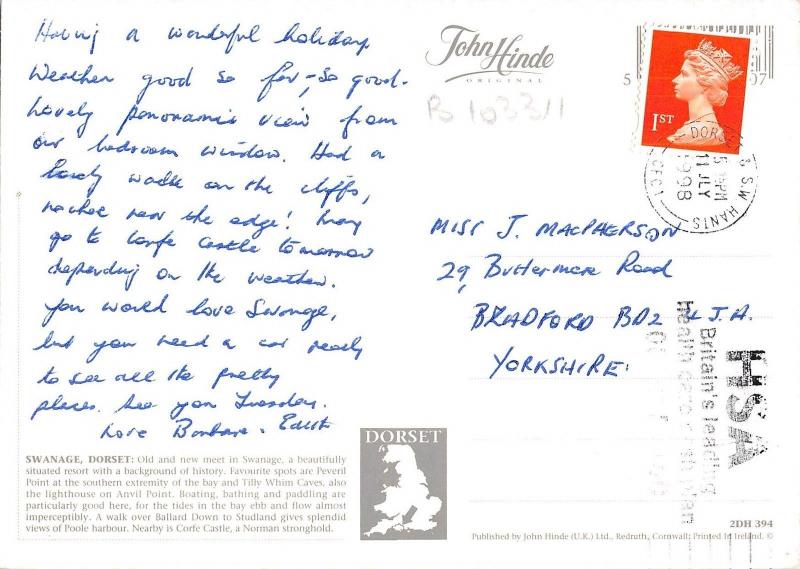 Having a wonderful holiday.
Weather good so far, so good.
Lovely panoramic view from
our bedroom window. Had a
lovely walk on the cliffs,
rather near the edge! May
go to Corfe Castle tomorrow
depending on the weather.
You would love Swanage,
but you need a car really
to see all the pretty
places. See you Tuesday.
Love Barbara. Edith
SWANAGE, DORSET: Old and new meet in Swanage, a beautifully
situated resort with a background of history. Favourite spots are Peveril
Point at the southern extremity of the bay and Tilly Whim Caves, also
the lighthouse on Anvil Point. Boating, bathing and paddling are
particularly good here, for the tides in the bay ebb and flow almost
imperceptibly. A walk over Ballard Down to Studland gives splendid
views of Poole harbour. Nearby is Corfe Castle, a Norman stronghold.
DORSET
John Hinde
ORIGINAL
B 103311
5 07
1ST
DORSET & S.W HANTS
PM
11 JLY
1998
MISS J. MACPHERSON
29, Buttermere Road
BRADFORD BD2 J.A.
YORKSHIRE.
HSA
Britain's leading
health plan
2DH 394
Published by John Hinde (U.K.) Ltd., Redruth, Cornwall; Printed In Ireland. ©